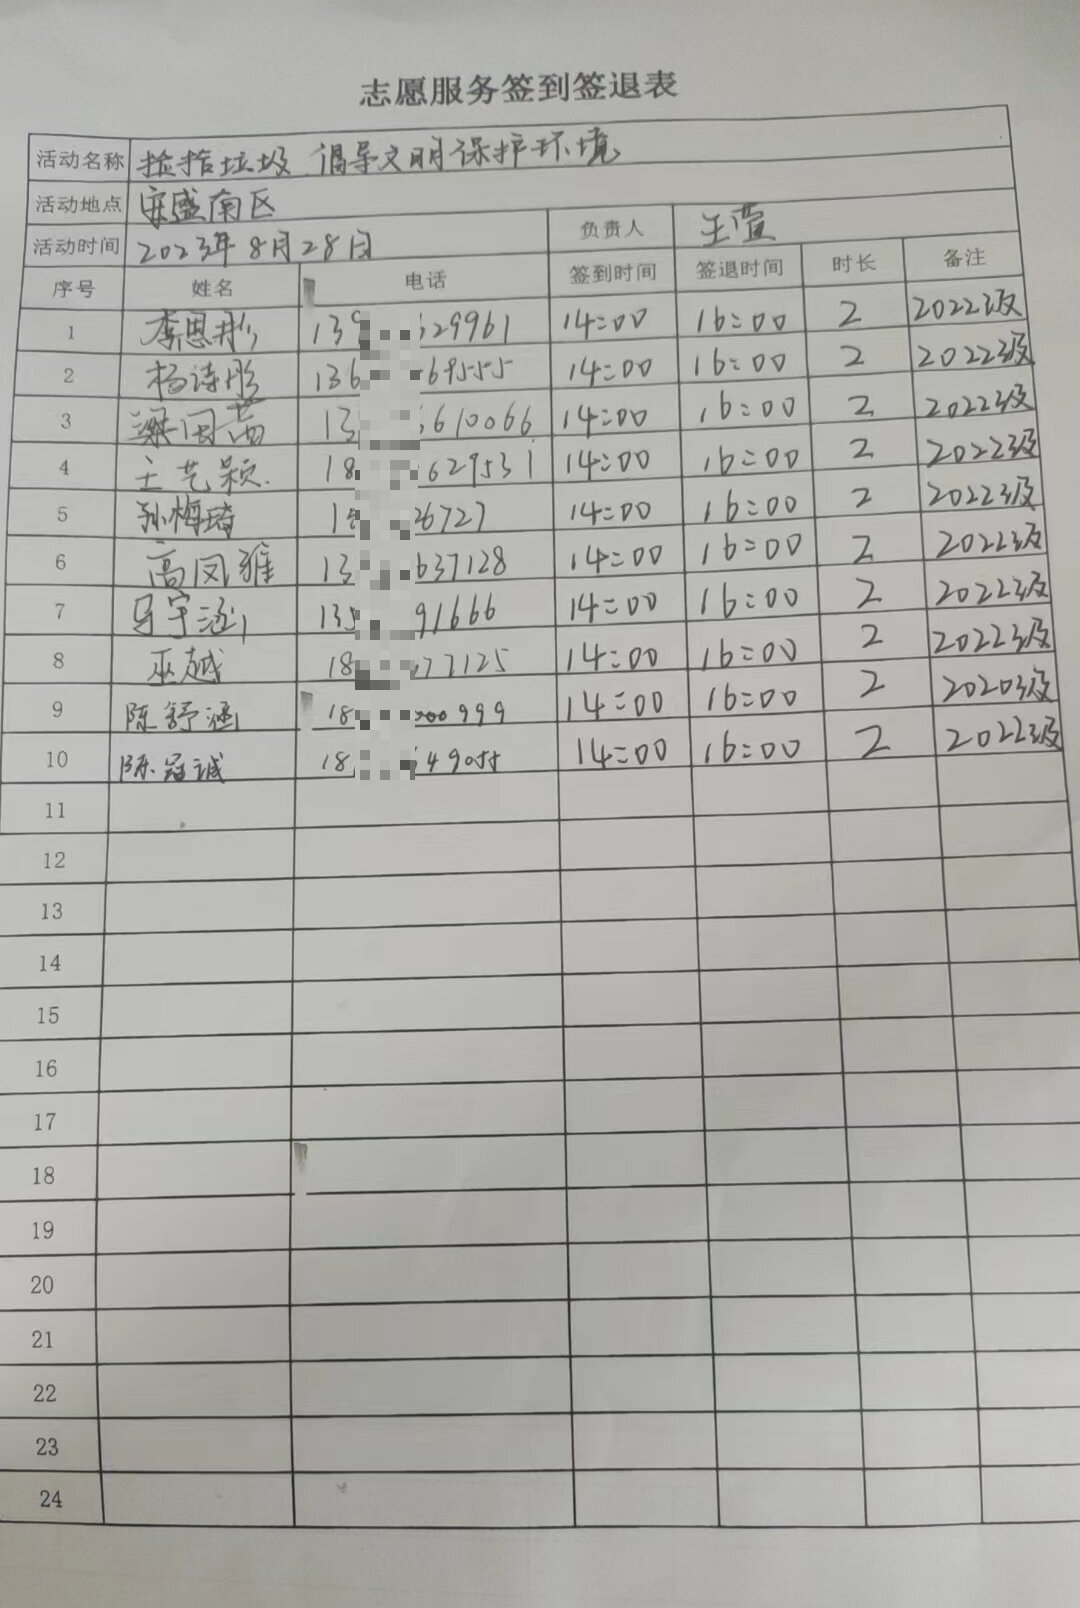 志愿服务签到签退表
活动名称 捡拾垃圾 倡导文明保护环境
活动地点 宋盛南区
活动时间 2023年8月28日 负责人 王萱
序号 姓名 电话 签到时间 签退时间 时长 备注
1 李思彤 139 629961 14:00 16:00 2 2022级
2 杨诗彤 136 69555 14:00 16:00 2 2022级
3 梁闰茜 13 6610066 14:00 16:00 2 2022级
4 王艺颖 18 629531 14:00 16:00 2 2022级
5 孙梅琦 1 26727 14:00 16:00 2 2022级
6 高凤雅 13 637128 14:00 16:00 2 2022级
7 马宇涵 135 91666 14:00 16:00 2 2022级
8 巫越 18 77125 14:00 16:00 2 2022级
9 陈舒涵 18 000999 14:00 16:00 2 2020级
10 陈冠诚 18 49055 14:00 16:00 2 2022级
11
12
13
14
15
16
17
18
19
20
21
22
23
24